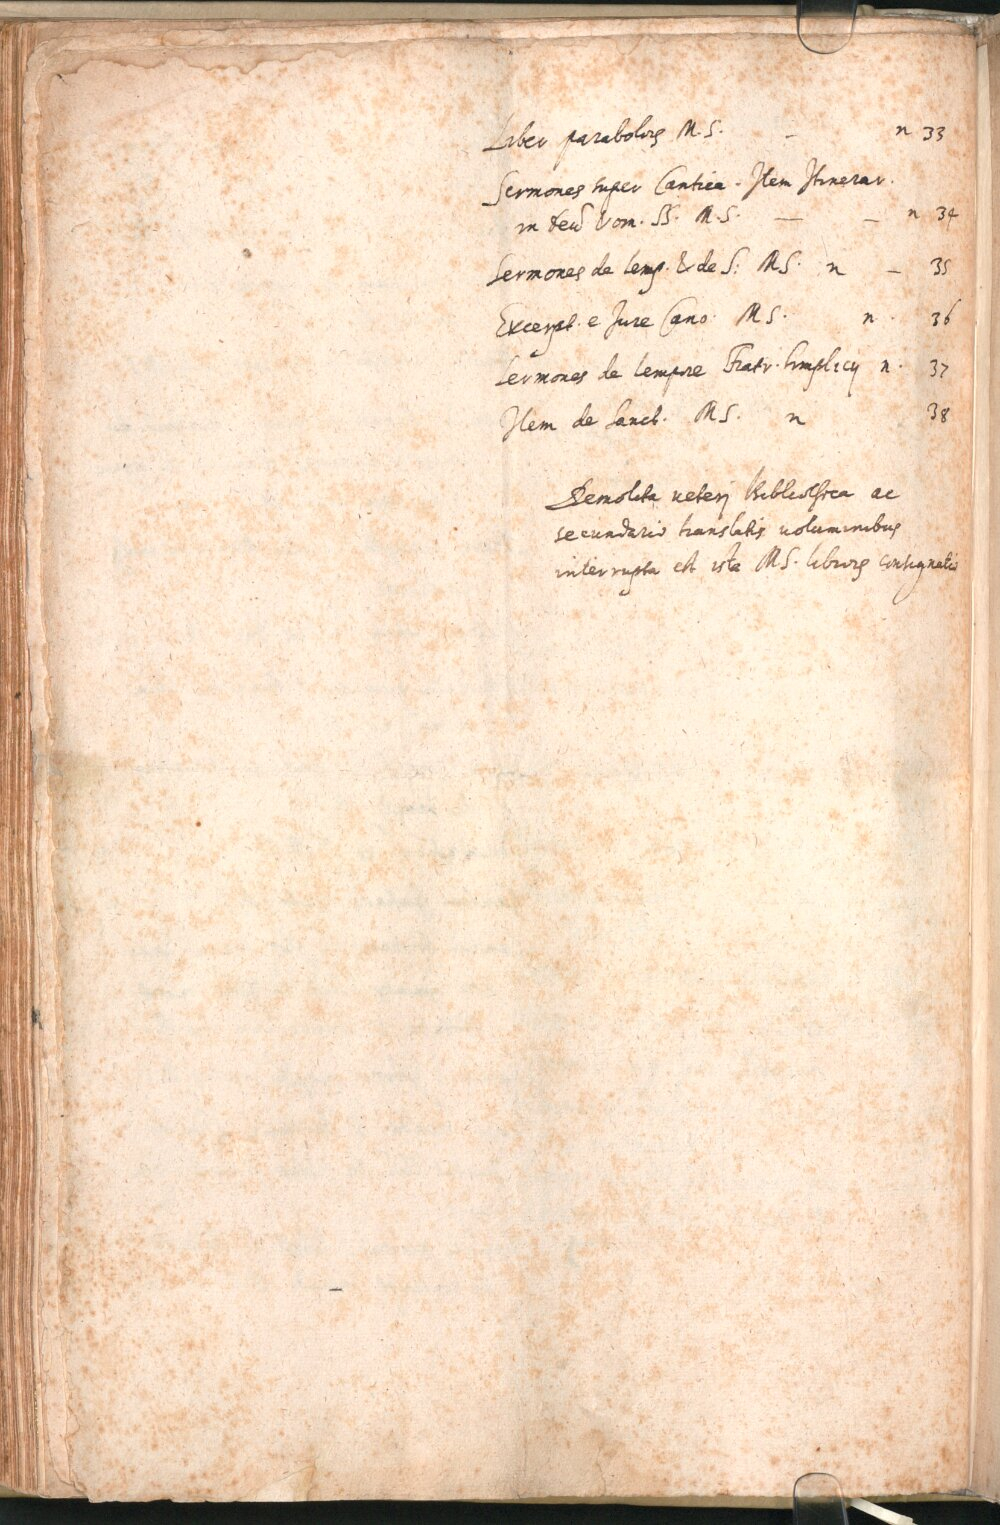 Liber parabolꝝ M.S. – n 33
Sermones super Cantica. Item Itinerar.
in SS. M.S. – – n 34
Sermones de temp. & de S: MS. n – 35
Excerpt. e Jure Cano. MS. n. 36
Sermones de tempore Fratr. Simplicij n. 37
Item de Sanct. MS. n 38
Demolita veterj Bibliotheca ac
secundario translatis voluminibus
interrupta est ista MS. librorꝝ consignatio